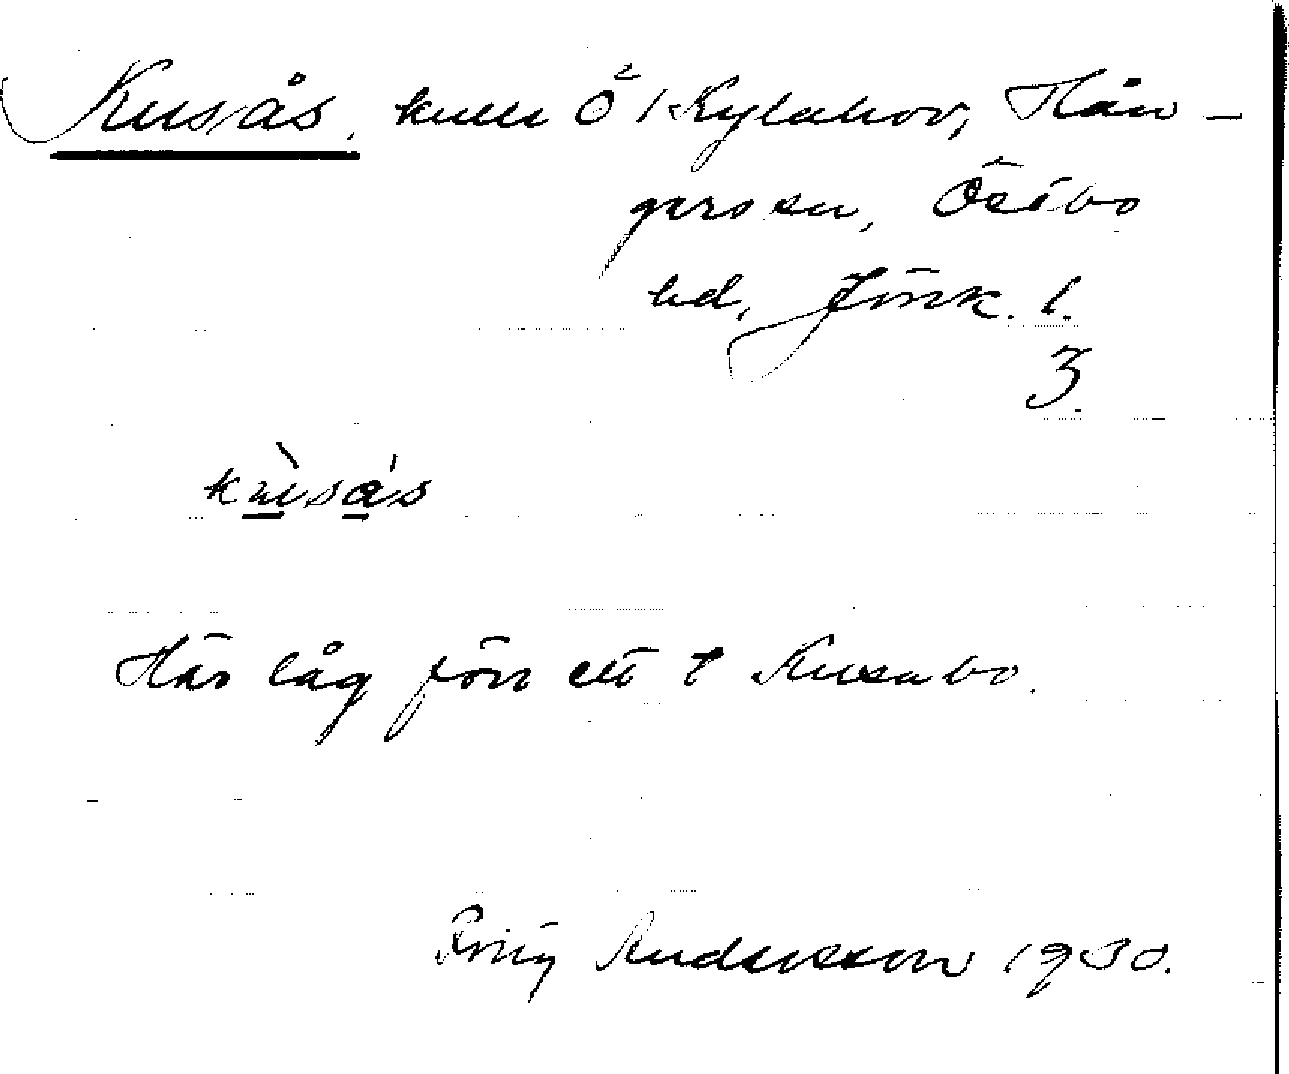 Kusås, kulle Ö i Kylahov, Hån-
gers sn, Östbo
hd, Jönk. l.
3.
kùsás
Här låg förr ett t Kusabo.
Andersson 1930.